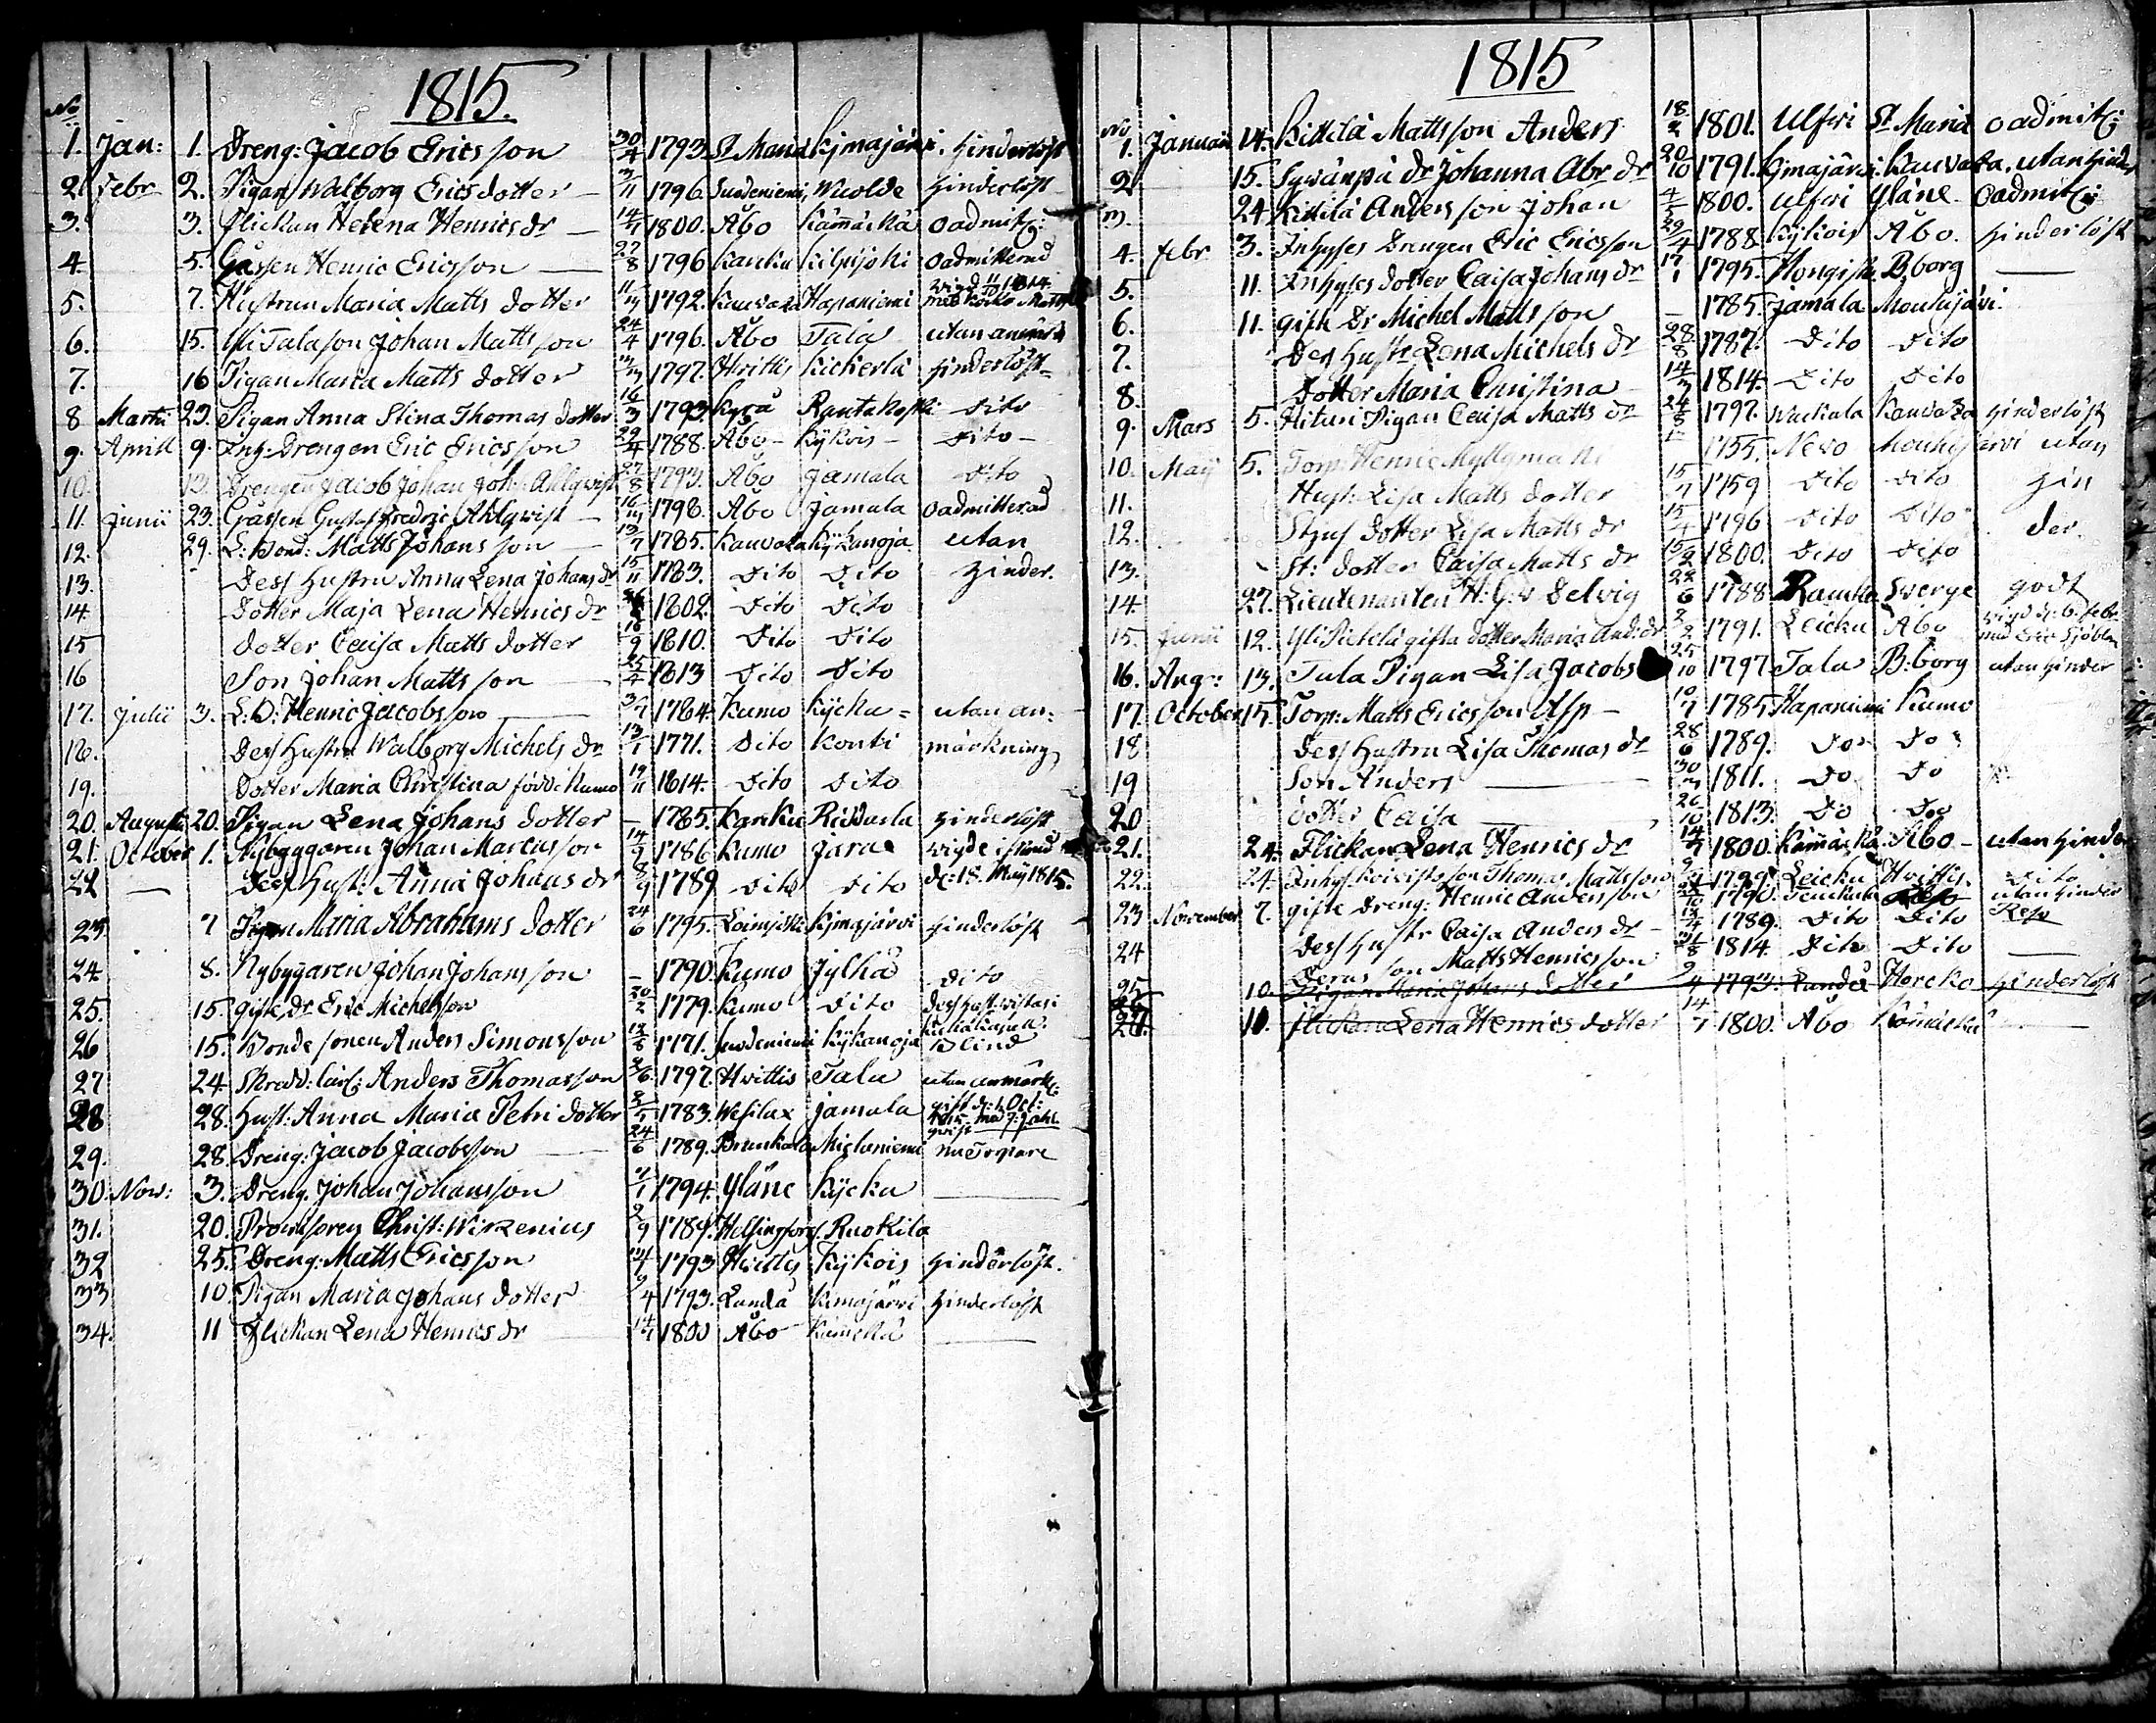 1815.
No
1. Jan: 1. Dreng: Jacob Ericsson 30/4 1793. St Maria Kjmajärvi. hinderlöst
2. Febr 2. Pigan Walborg Ericsdotter — 3/11 1796. Suodeniemi, hinderlöst
3. 3. Flickan Helena Henricsdr — 14/7 1800. Åbo oadmitg:
4. 5. Gåssen Henric Ericsson — 27/8 1796 Karcku Kilpijoki oadmitterad
5. 7. Hustrun Maria Matts dotter 11/3 1792. Kauvatsa Haapaniemi
6. 15. Yli Talason Johan Mattsson 24/4 1796. Åbo Tala utan
7. 16 Pigan Maria Matts dotter 1797. Hvittis Kickerlä hinderlöst
8 Martii 23. Pigan Anna Stina Thomas dotter 16/3 1793. Kyrå Rantakoski Dito
9. Aprill 9. Inh: Drengen Eric Ericsson 29/4 1788. Åbo – Kijkois – Dito –
10. 13. Drengen Jacob Johan Joh: Ahlqwist 27/8 1793. Åbo Jamala Dito
11. Junii 23. Gåssen Gustaf Fredric Ahlqwist — 1798. Åbo Jamala oadmitterad
12. 29. L: Bond: Matts Johansson — 13/7 1785. Kauvatsa Kykänoja utan
13. Dess hustru Anna Lena Johans dr 15/11 1783. Dito Dito hinder.
14. Dotter Maja Lena Henrics dr 1802. Dito Dito
15 dotter Caisa Matts dotter 18/9 1810. Dito Dito
16 Son Johan Mattsson 25/4 1813 Dito Dito
17. Julii 3. L: B: Henric Jacobsson 1764. Kumo Kycku = utan an:
18. Dess hustru Walborg Michels dr 13/1 1771. Dito Konti märkning
19. Dotter Maria Christina född i Kumo 19/11 1814. Dito Dito
20. Augusti 20. Pigan Lena Johans dotter — 1785. Karcku Riddarla hinderlöst
21. October 1. Nybyggaren Johan Marcusson 14/9 1786 Kumo Jaraa wigde
22 — Dess hust: Anna Johans dr 8/9 1789 Dito Dito d: 18. Maij 1815.
23. 7 Pigan Maria Abrahams dotter 24/6 1795. Kjmajärvi hinderlöst
24 8. Nybyggaren Johan Johansson – 1790. Kumo Jylhä Dito
25. 15. gifte dr Eric Michelsson 20/2 1779. Kumo Dito
26 15. Bonde sonen Anders Simonsson 1771. Suodeniemi Kykänoja Blind
27 24. Skredd: lärl: Anders Thomasson 1797. Hvittis Tala utan anmärk:
28 28. Hust: Anna Maria Petri dotter 1783. Wesilax Jamala gift d: 1 Oct:
29. 28. Dreng: Jacob Jacobsson 24/6 1789. Punkala Mieloniemi nu Torpare
30. Nov: 3. Dreng. Johan Johansson 1794. Yläne Kycku —
31. 20. Provisoren Christ: Wirzenius 2/9 1784. Helsingfors. Ruokila
32 25. Dreng: Matts Ericsson 1793 Hvittis Kijkois hinderlöst.
33 10. Pigan Maria Johans dotter 9/4 1793. Lundå Kimajärvi hinderlöst
34. 11 Flickan Lena Henrics dr 14/7 1800 Åbo —
1815
No
1. Januari 14. Kittilä Mattsson Anders 1801. Ulfvi St Maria oadmit:
2. 15. dr Johanna Abr. dr 20/10 1791. Kjmajärvi. Kauvatsa. utan hinder
3. 24. Kittilä Andersson Johan 1800. Ulfvi Yläne oadmit:
4. Febr 3. Inhyses Drengen Eric Ericsson 29/4 1788. Kijkois Åbo. hinderlöst
5. 11. Inhyses dotter Caisa Johans dr 17/1 1795. B:borg —
6. 11. gift Dr Michel Mattsson – 1785. Jamala Mouhijärvi.
7. Dess hustr Lena Michels dr 28/8 1787. Dito Dito
8. Dotter Maria Christina 14/3 1814. Dito Dito
9. Mars 5. Hituri Pigan Caisa Matts dr 24/8 1797. Kauvatsa hinderlöst
10. Maij 5. Torp: Henric Myllymaki 1755. Nevo Mouhijärvi utan
11. Hust: Lisa Matts dotter 1759 Dito Dito hin
12. Stjuf dotter Lisa Matts dr 15/4 1796 Dito Dito der.
13. St: dotter Caisa Matts dr 15/2 1800. Dito Dito
14 27. Lieutenanten H: G: v Delvig 28/6 1788. Sverge godt
15. Junii 12. Yli Pietilä gifta dotter Maria And: dr 1791. Leicku Åbo wigd d: 6. febr. med Eric Sjöblom
16. Aug: 13. Tula Pigan Lisa Jacobs 25/10 1797. Tala B:borg utan hinder
17. October 15. Torp: Matts Ericsson Asp – 1785 Hapaniemi Kumo
18 Dess hustru Lisa Thomas dr 28/6 1789. Do Do
19 Son Anders — 1811. Do Do
20 dotter Caisa — 26/10 1813. Do Do
21. 24. Flickan Lena Henrics dr 14/7 1800. Åbo – utan hinder
22. 24. Inhys. Koivisto son Thomas Mattsson 1799. Leicku Hvittis. Dito
23 November 7. gifte Dreng: Henric Andersson 1790. utan hinder
Dess hustr Caisa Anders dr – 1789. Dito Dito Reso
24 Deras son Matts Henricsson 1814. Dito Dito —
25 10. Pigan Maria Johans dotter 9/4 1793. Lundå hinderlöst
26. 11. Flickan Lena Henrics dotter 14/7 1800. Åbo —